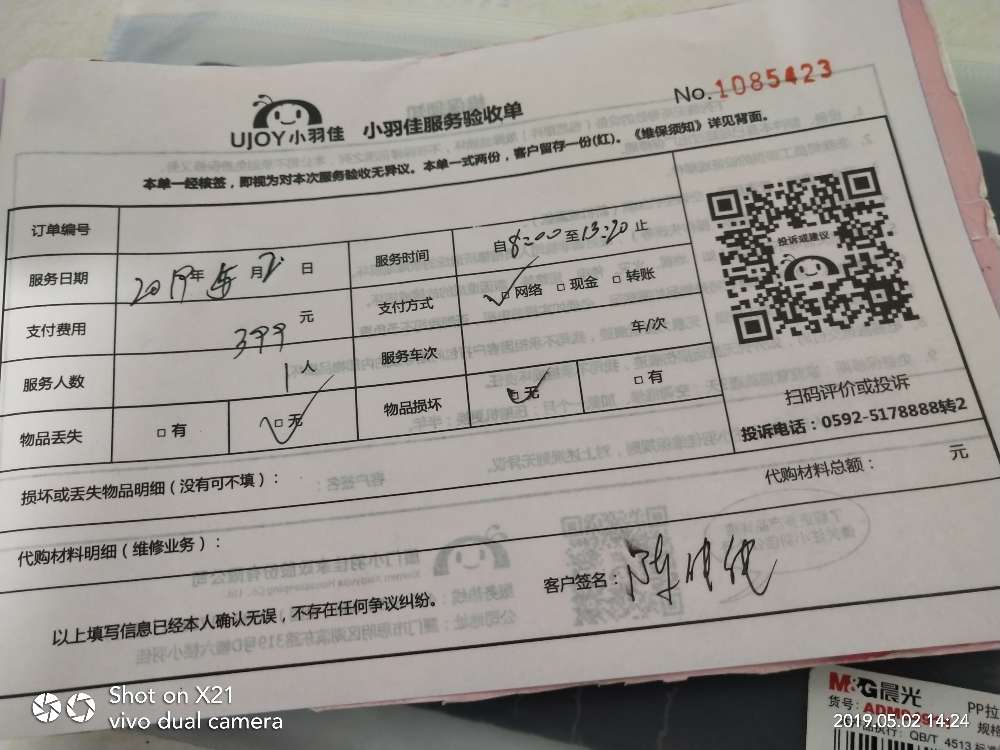 No.1085423
UJOY小羽佳 小羽佳服务验收单
本单一经核签，即视为对本次服务验收无异议。本单一式两份，客户留存一份(红)。《维保须知》详见背面。
订单编号
服务日期 2019年 月2日 服务时间 自8:00至13:20止
支付费用 399元 支付方式 □网络 □现金 □转账
服务人数 1人 服务车次 车/次
物品丢失 □有 □无 物品损坏 □无 □有
投诉或建议
扫码评价或投诉
投诉电话：0592-5178888转2
损坏或丢失物品明细（没有可不填）：
代购材料总额： 元
代购材料明细（维修业务）：
客户签名：
以上填写信息已经本人确认无误，不存在任何争议纠纷。
Shot on X21
vivo dual camera
M&G晨光
PP拉
货号：ADM
规格
QB/T 4513
2019.05.02 14:24